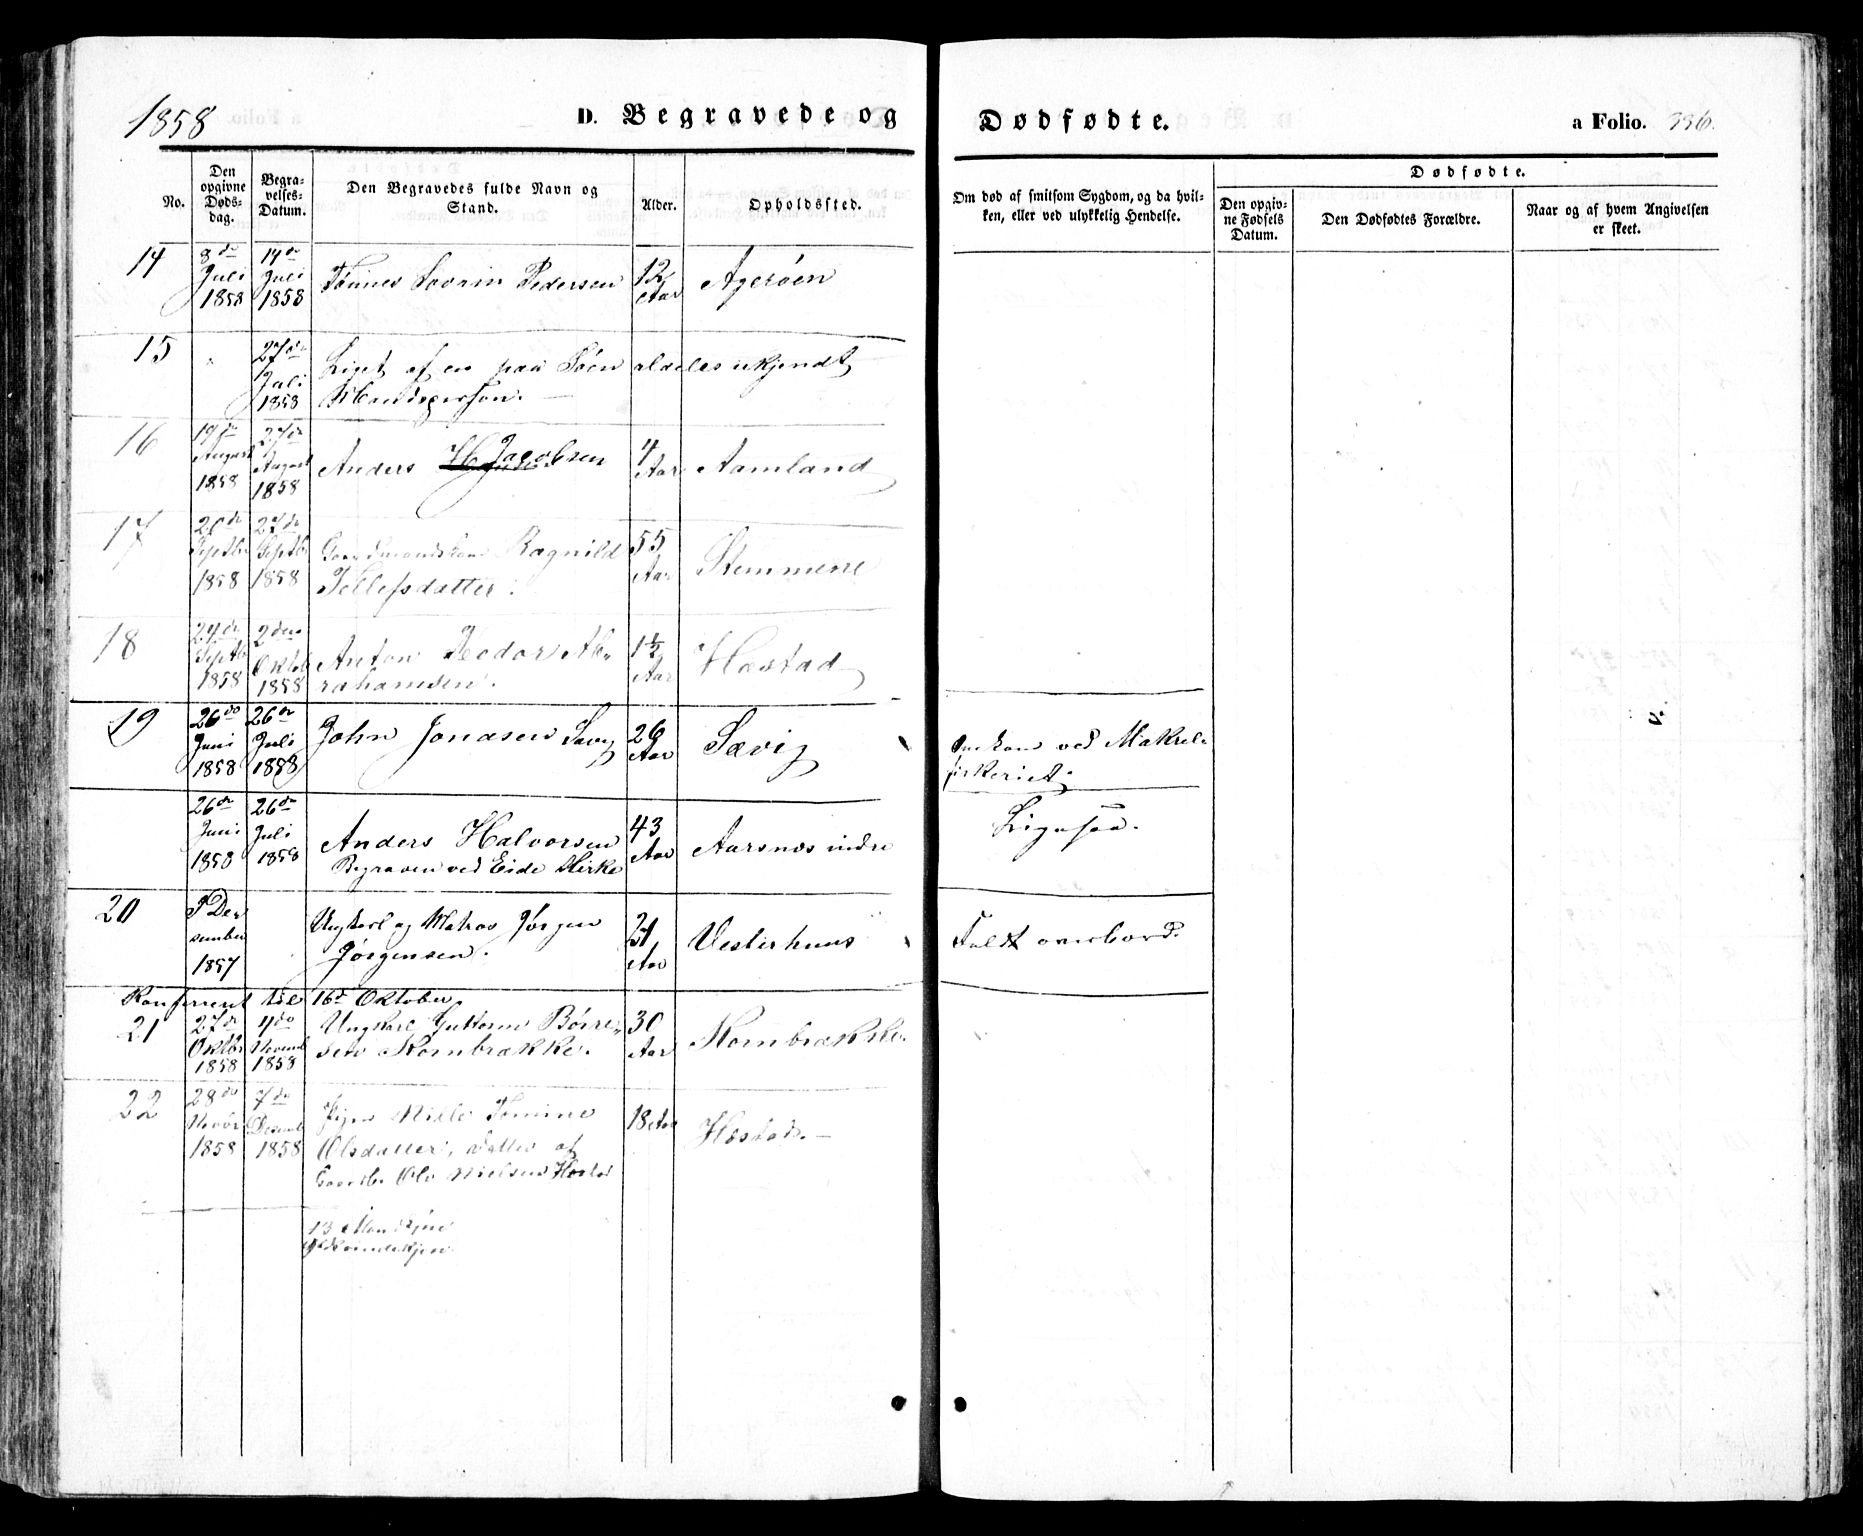 1858
D. Begravede og Dødfødte. a Folio. 336.
No.
Den opgivne Døds-dag.
Begra-velses-Datum.
Den Begravedes fulde Navn og Stand.
Alder.
Opholdssted.
Om død af smitsom Sygdom, og da hvil-
ken, eller ved ulykkelig Hendelse.
Dødfødte.
Den opgiv-
ne Fødsels
Datum.
Den Dødfødtes Forældre.
Naar og af hvem Angivelsen
er skeet.
14 8de Juli 1858 14de Juli 1858 Tønnes Severin Pedersen 12 Aar Agerøen
15 27de Juli 1858 Liget af en paa Søen aldeles ukjendt
Mandsperson.
16 19de August 1858 27de August 1858 Anders Jacobsen 4 Aar Aamland
17 20de Septbr 1858 27de Septbr 1858 Gaardmandskone Ragnild 55 Aar Stemmene
Tellefsdatter.
18 24de Septbr 1858 2den Oktob 1858 Anton Teodor Ab- 1½ Aar Hæstad
rahamsen.
19 26de Juni 1858 26de Juli 1858 John Jonasen Sævig 26 Aar Sævig
Omkom ved Makrel-
fiskeriet.
26de Juni 1858 26de Juli 1858 Anders Halvorsen 43 Aar Aarsnes indre Ligesaa.
Begraven ved Eide Kirke
20 Desember 1857 Ungkarl og Matros Jørgen 21 Aar Vesterhuus Faldt overbord.
Jørgensen.
Konfereret til 16de Oktober.
21 27de Oktbr 1858 4de Novemb 1858 Ungkarl Guttorm Børre- 30 Aar Kornbrække.
sen Kornbrække.
22 28de Novbr 1858 7de Desemb 1858 Pigen Nille Tomine 18 Aar Hæstad.
Olsdatter, Datter af
Gaardbr Ole Nielsen Hæstad
13 Mandkjøn
Kvindekjøn.